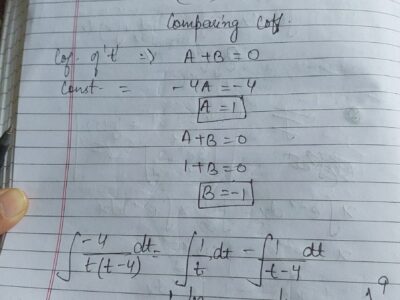 Comparing Coff.
Cof. of 't' => A + B = 0
Const. = -4A = -4
A = 1
A + B = 0
1 + B = 0
B = -1
∫ -4/t(t-4) dt = ∫ 1/t dt - ∫ 1/t-4 dt